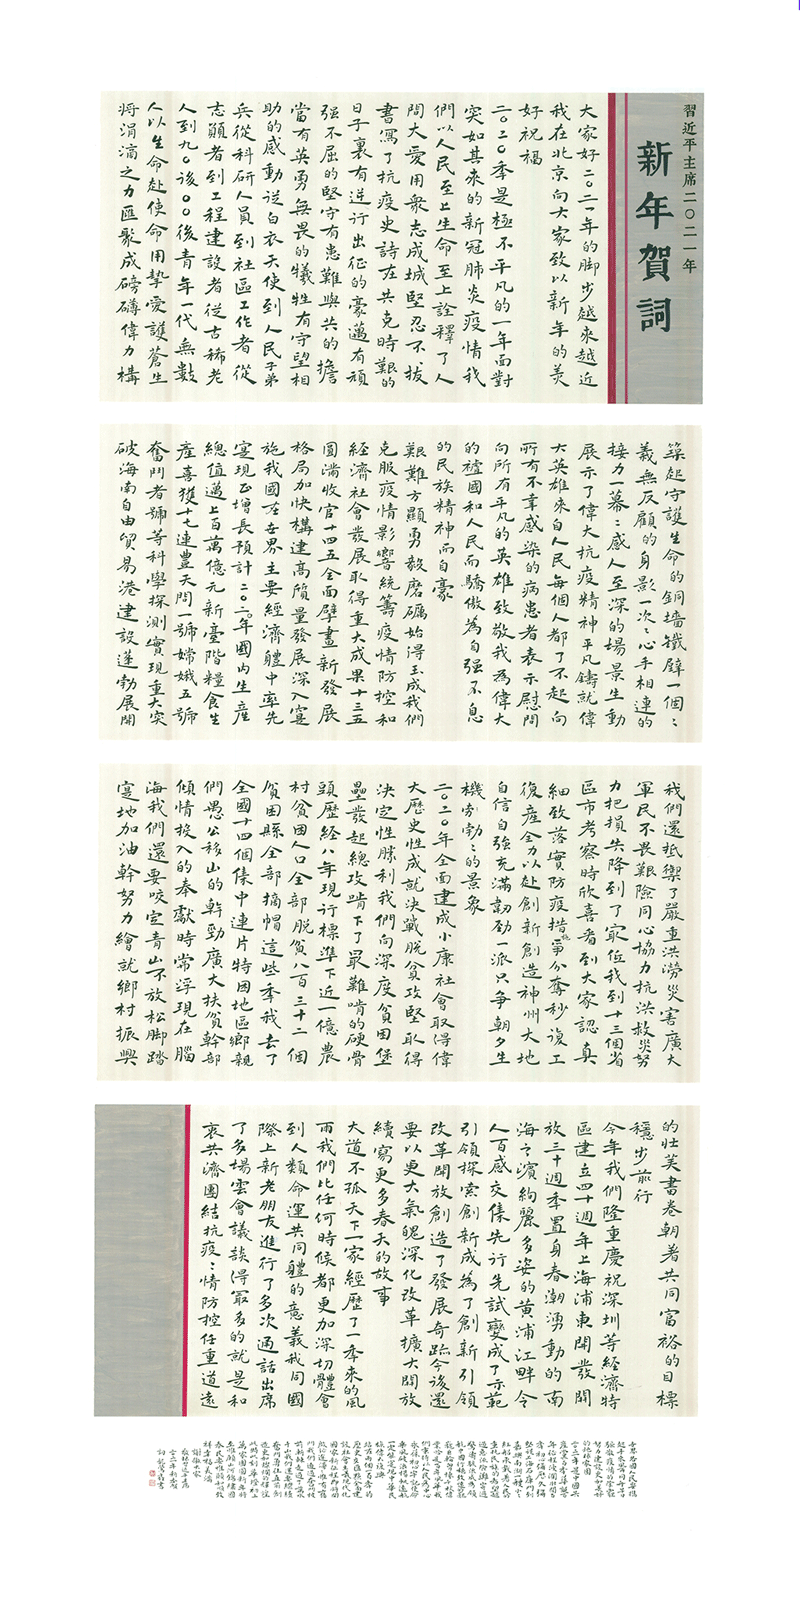 習近平主席二〇二一年
新年賀詞
大家好二〇二一年的脚步越來越近
我在北京向大家致以新年的美
好祝福
二〇二〇年是極不平凡的一年面對
突如其來的新冠肺炎疫情我
們以人民至上生命至上詮釋了人
間大愛用衆志成城堅忍不拔
書寫了抗疫史詩在共克時艱的
日子裏有逆行出征的豪邁有頑
强不屈的堅守有患難與共的擔
當有英勇無畏的犧牲有守望相
助的感動從白衣天使到人民子弟
兵從科研人員到社區工作者從
志願者到工程建設者從古稀老
人到九〇後〇〇後青年一代無數
人以生命赴使命用摯愛護蒼生
將涓滴之力匯聚成磅礴偉力構
築起守護生命的銅墻鐵壁一個〻
義無反顧的身影一次〻心手相連的
接力一幕〻感人至深的場景生動
展示了偉大抗疫精神平凡鑄就偉
大英雄來自人民每個人都了不起向
所有不幸感染的病患者表示慰問
向所有平凡的英雄致敬我為偉大
的祖國和人民而驕傲為自强不息
的民族精神而自豪
艱難方顯勇毅磨礪始得玉成我們
克服疫情影響統籌疫情防控和
經濟社會發展取得重大成果十三五
圓滿收官十四五全面擘畫新發展
格局加快構建高質量發展深入實
施我國在世界主要經濟體中率先
實現正增長預計二〇二〇年國内生産
總值邁上百萬億元新臺階糧食生
産喜獲十七連豐天問一號嫦娥五號
奮鬥者號等科學探測實現重大突
破海南自由貿易港建設蓬勃展開
我們還抵禦了嚴重洪澇災害廣大
軍民不畏艱險同心協力抗洪救災努
力把損失降到了最低我到十三個省
區市考察時欣喜看到大家認真
細致落實防疫措施爭分奪秒復工
復産全力以赴創新創造神州大地
自信自强充滿韌勁一派只争朝夕生
機勃勃〻的景象
二〇二〇年全面建成小康社會取得偉
大歷史性成就決戰脱貧攻堅取得
決定性勝利我們向深度貧困堡
壘發起總攻啃下了最難啃的硬骨
頭歷經八年現行標準下近一億農
村貧困人口全部脱貧八百三十二個
貧困縣全部摘帽這些年我去了
全國十四個集中連片特困地區鄉親
們愚公移山的幹勁廣大扶貧幹部
傾情投入的奉獻時常浮現在腦
海我們還要咬定青山不放松脚踏
實地加油幹努力繪就鄉村振興
的壯美畫卷朝着共同富裕的目標
穩步前行
今年我們隆重慶祝深圳等經濟特
區建立四十週年上海浦東開發開
放三十週年置身春潮湧動的南
海之濱絢麗多姿的黄浦江畔令
人百感交集先行先試變成了示範
引領探索創新成為了創新引領
改革開放創造了發展奇跡今後還
要以更大氣魄深化改革擴大開放
續寫更多春天的故事
大道不孤天下一家經歷了一年來的風
雨我們比任何時候都更加深切體會
到人類命運共同體的意義我同國
際上新老朋友進行了多次通話出席
了多場雲會議談得最多的就是和
衷共濟團結抗疫〻情防控任重道遠